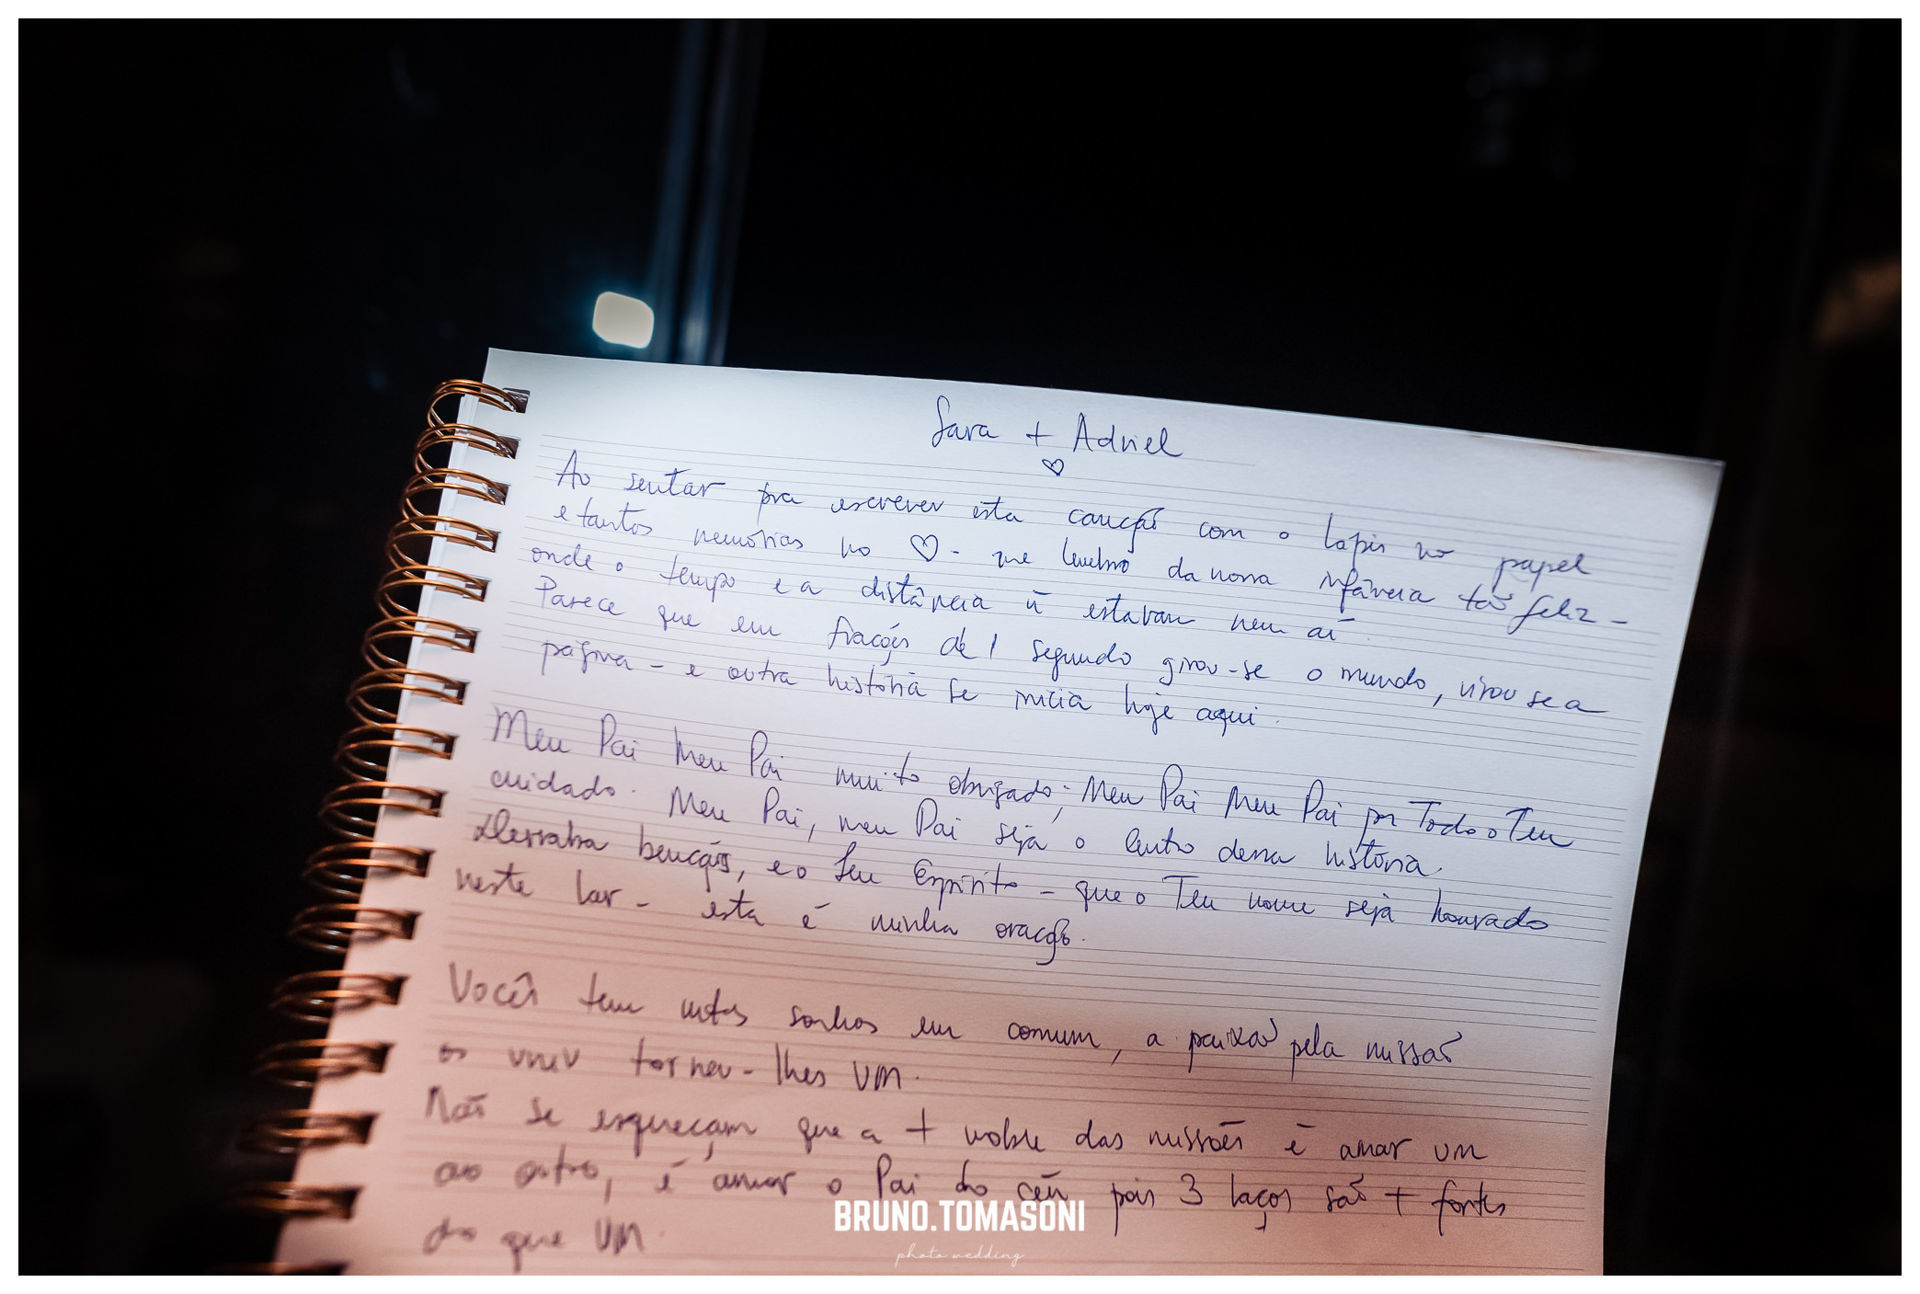 Sara + Adriel
♡
Ao sentar pra escrever esta canção com o lápis no papel
e tantos memórias no ♡ - me lembro da nossa infância tão feliz -
onde o tempo e a distância ñ estavam nem aí.
Parece que em frações de 1 segundo girou-se o mundo, virou se a
página - e outra história se inicia hoje aqui.
Meu Pai Meu Pai muito obrigado; Meu Pai Meu Pai por Todo o Teu
cuidado. Meu Pai, meu Pai seja o centro dessa história.
Derrama bençãos, e o Seu Espírito - que o Teu nome seja honrado
neste lar - esta é minha oração.
Vocês tem sonhos em comum, a paixão pela missão
os uniu tornou-lhes UM.
Não se esqueçam que a + nobre das missões é amar um
ao outro, é amar o Pai do céu pois 3 laços são + fortes
do que UM.
BRUNO.TOMASONI
photo wedding